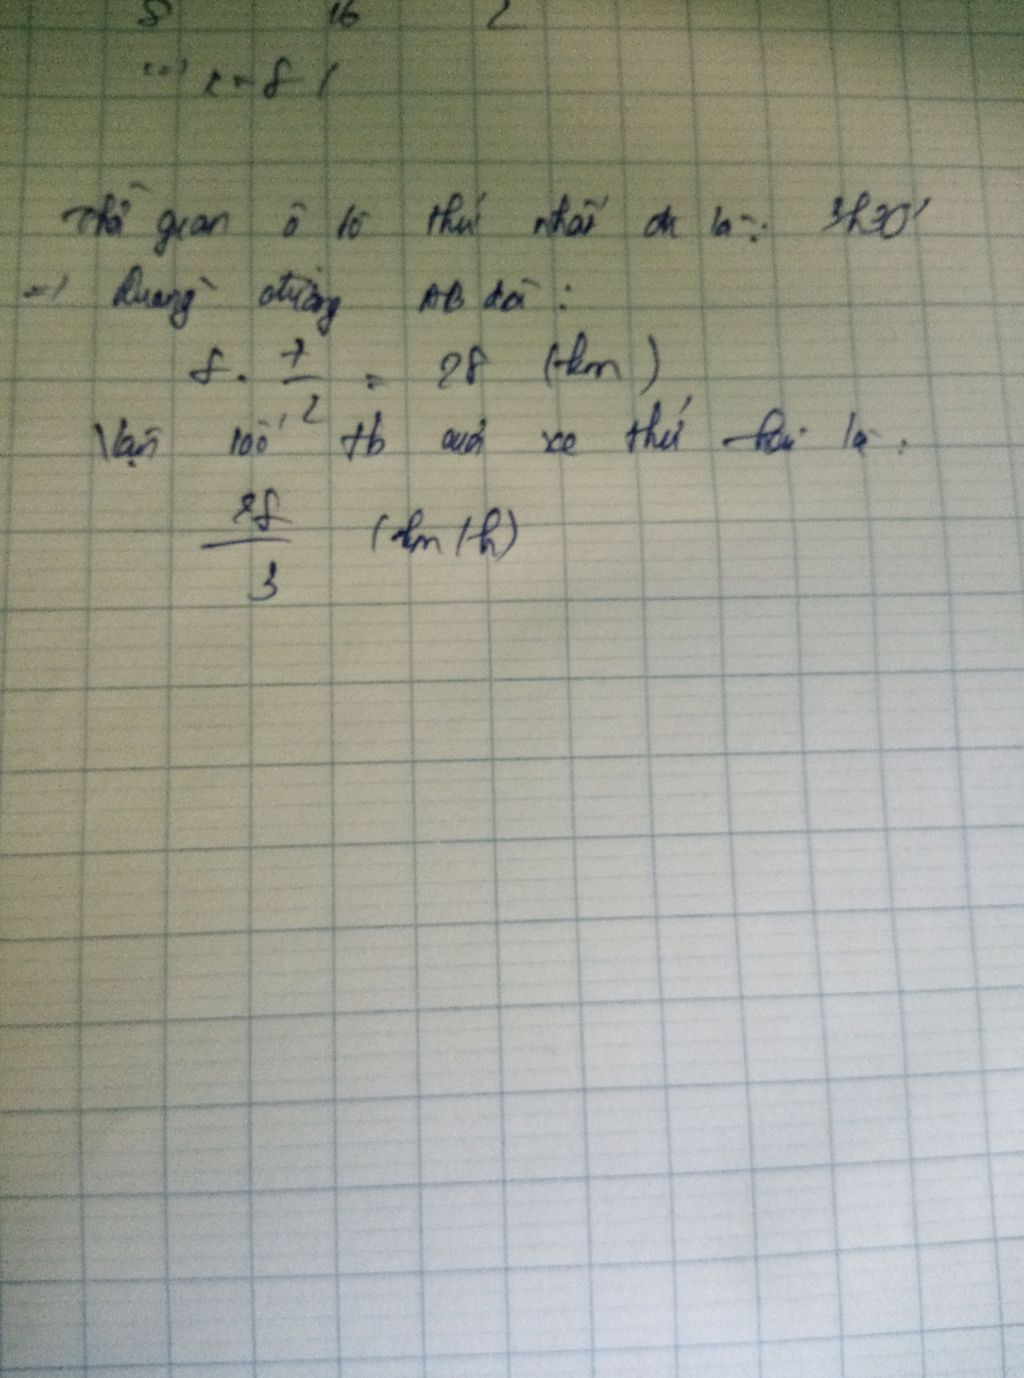 8 16 2
<=> x = 8
Thời gian ô tô thứ nhất đi là: 3h30'
=> Quãng đường AB dài:
8 . 7/2 = 28 (km)
Vận tốc tb của xe thứ hai là:
28/3 (km/h)